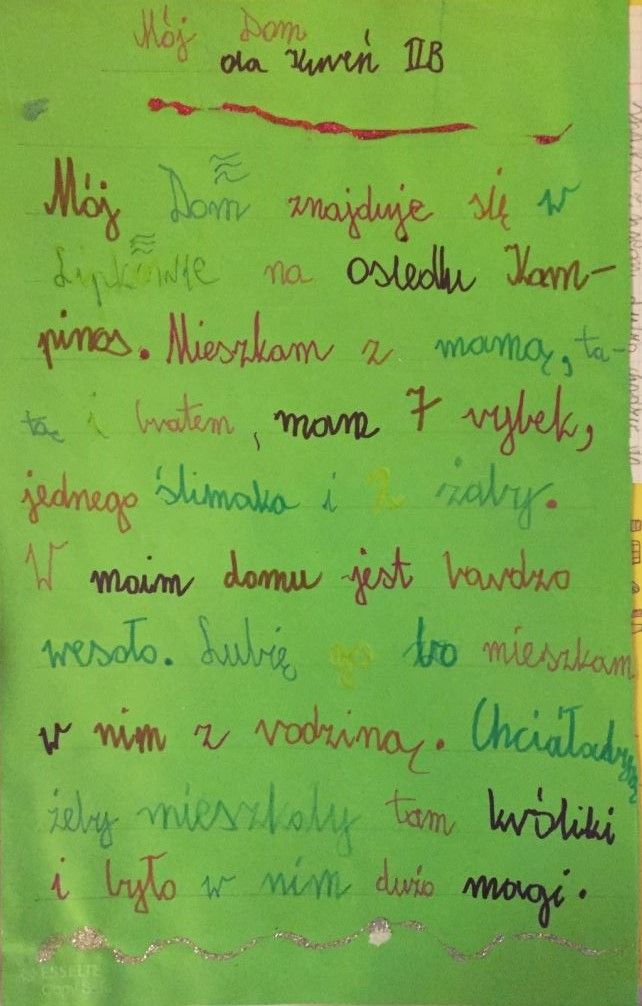 Mój Dom
IIB
Mój Dom znajduje się w
Lipkowie na osiedlu Kam-
pinos. Mieszkam z mamą, ta-
tą i bratem, mam 7 rybek,
jednego ślimaka i 2 żaby.
W moim domu jest bardzo
wesoło. Lubię go bo mieszkam
w nim z rodziną.
żeby mieszkały tam króliki
i było w nim dużo magi.
ESSELTE